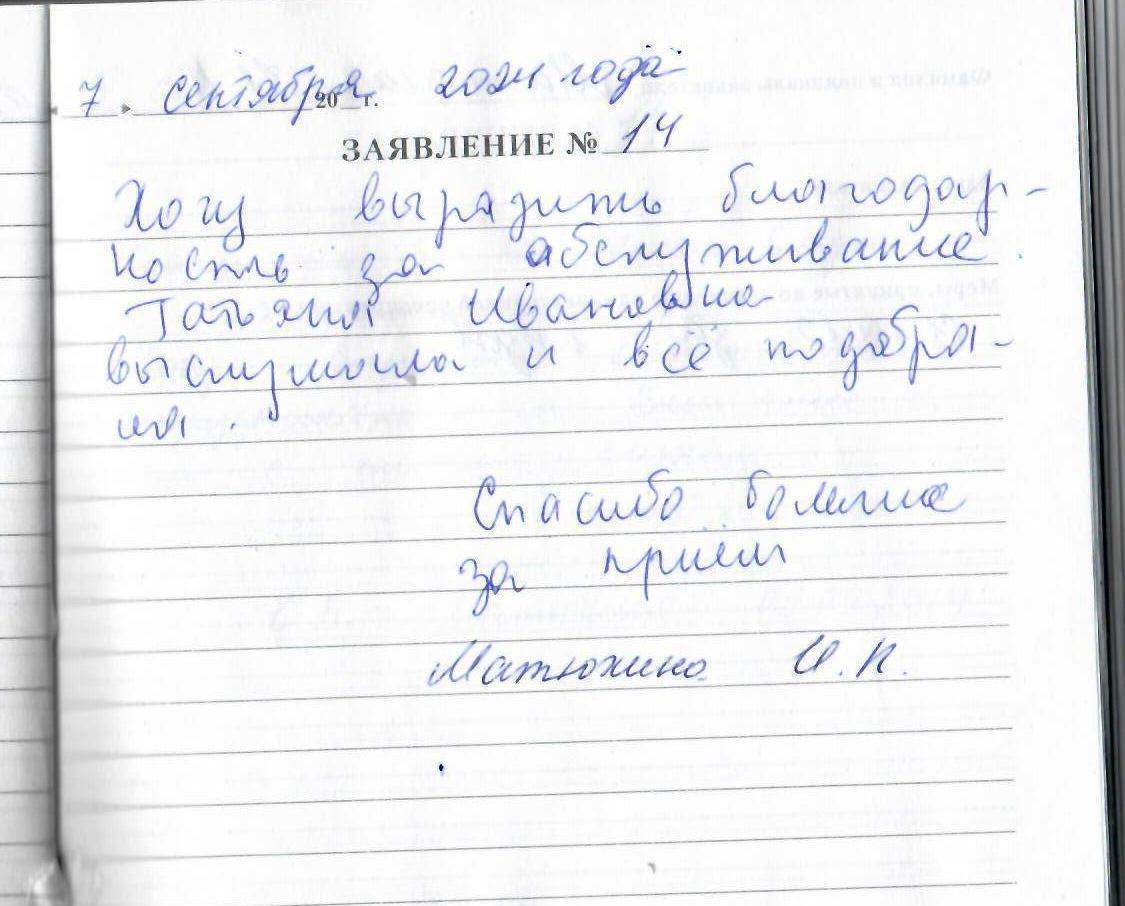 7 » сентября 20 г. 2024 года
ЗАЯВЛЕНИЕ № 14
Хочу выразить благодар-
ность за обслуживание
Татьяна Ивановна
выслушала и всё подобра-
ла.
Спасибо большое
за приём
Матюхина И. П.